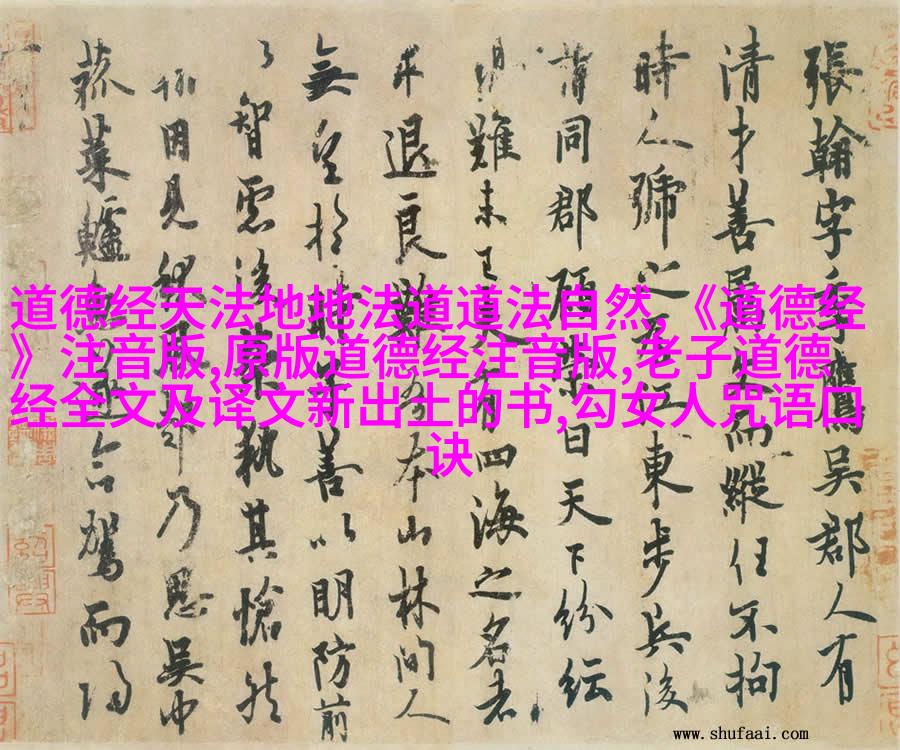 道德经天法地地法道道法自然,《道德经
》注音版,原版道德经注音版,老子道德
经全文及译文新出土的书,勾女人咒语口
诀
張翰字季鷹吳郡人有
清才善屬文而縱任不拘
時人號之為江東步兵後
謂同郡顧榮曰天下紛紜
難未已夫有四海之名者
求退良難吾本山林間人
無望於時子善以明防前
智慮後榮執其愴然
翰因見秋風起乃思吳中
菰菜鱸魚遂命駕而歸
www.shufaai.com